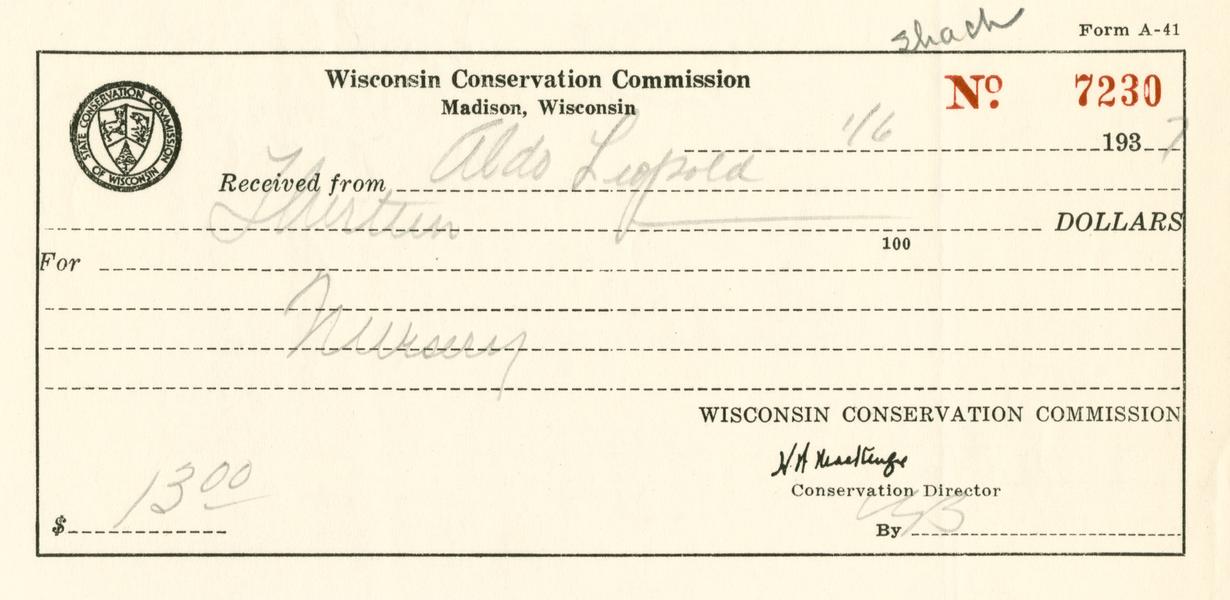 shack
Form A-41
Wisconsin Conservation Commission
Madison, Wisconsin
Nº. 7230
STATE CONSERVATION COMMISSION OF WISCONSIN
1/6 1937
Received from Aldo Leopold
Thirteen DOLLARS
100
For
Nursery
WISCONSIN CONSERVATION COMMISSION
H W MacKenzie
Conservation Director
$ 13 00
By